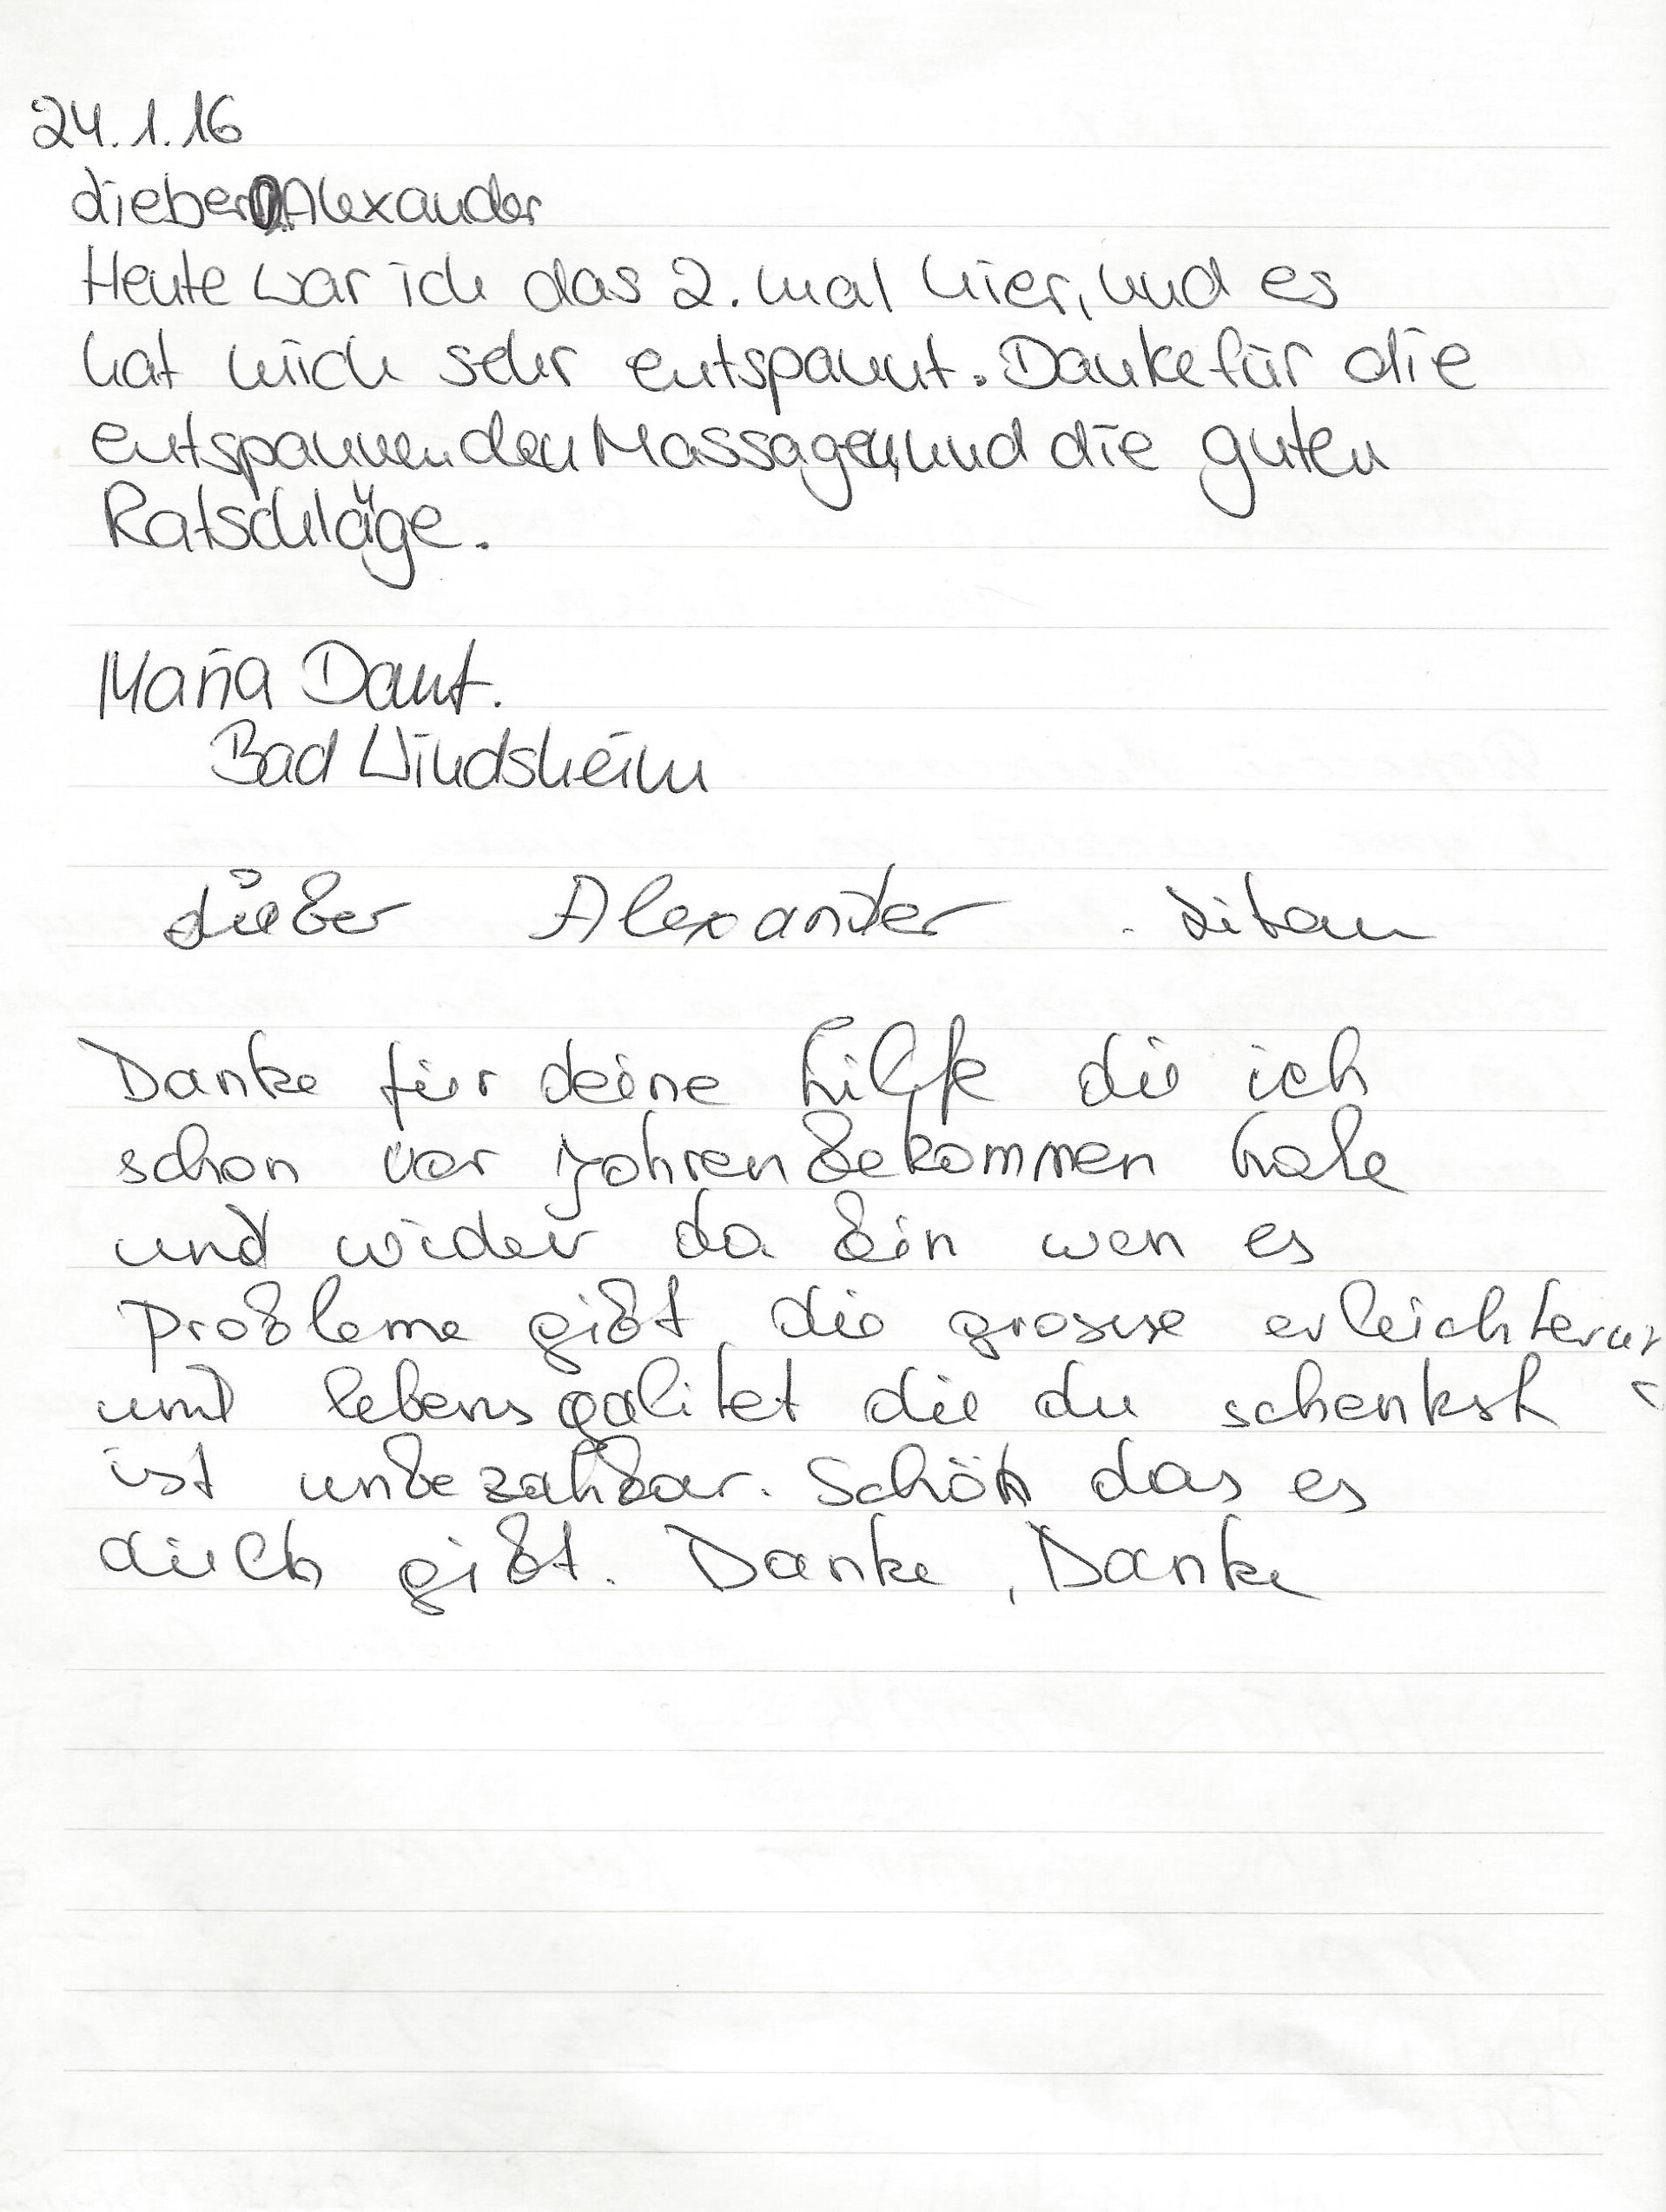 24.1.16
Lieber Alexander
Heute war ich das 2. mal hier, und es
hat mich sehr entspannt. Danke für die
entspannenden Massagen, und die guten
Ratschläge.
Maria Daut.
Bad Windsheim
Lieber Alexander
Danke für deine hilfe die ich
schon vor Jahren bekommen habe
und wider da bin wen es
Probleme gibt die grosse erleichterung
und lebensqalitet die du schenkst
ist unbezahbar. Schön das es
dich gibt. Danke, Danke